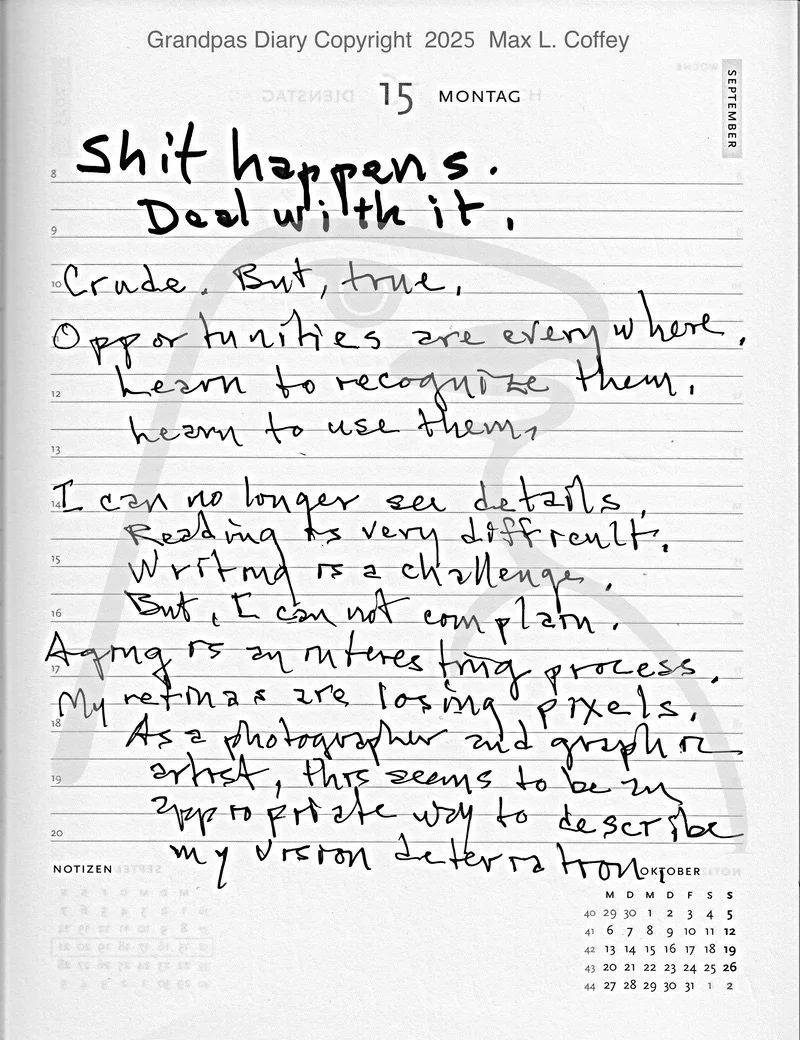 Grandpas Diary Copyright 2025 Max L. Coffey
SEPTEMBER
15 MONTAG
Shit happens.
8
Deal with it.
9
10 Crude. But, true.
Opportunities are everywhere.
12 Learn to recognize them.
Learn to use them,
13
14 I can no longer see details.
Reading is very difficult.
15 Writing is a challenge.
16 But, I can not complain.
Aging is an interesting process.
17
My retinas are losing pixels.
18
As a photographer and graphic
19 artist, this seems to be an
appropriate way to describe
20
my vision deterration.
NOTIZEN
OKTOBER
M D M D F S S
40 29 30 1 2 3 4 5
41 6 7 8 9 10 11 12
42 13 14 15 16 17 18 19
43 20 21 22 23 24 25 26
44 27 28 29 30 31 1 2